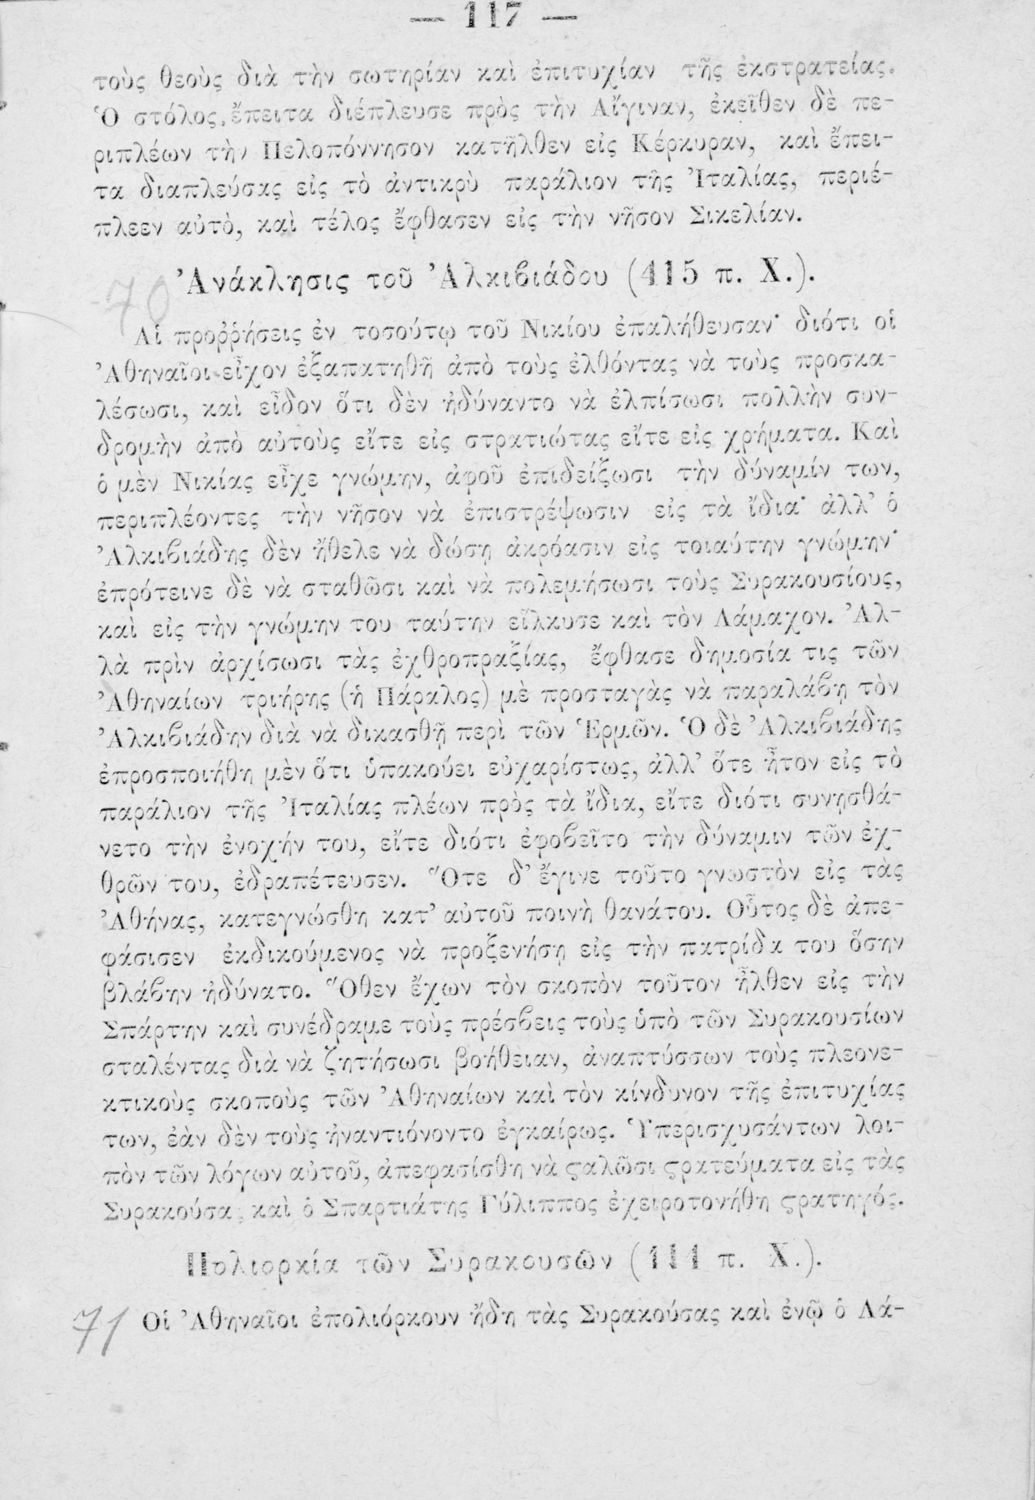 — 117 —
τοὺς θεοὺς διὰ τὴν σωτηρίαν καὶ ἐπιτυχίαν τῆς ἐκστρατείας.
Ὁ στόλος ἔπειτα διέπλευσε πρὸς τὴν Αἴγιναν, ἐκεῖθεν δὲ πε-
ριπλέων τὴν Πελοπόννησον κατῆλθεν εἰς Κέρκυραν, καὶ ἔπει-
τα διαπλεύσας εἰς τὸ ἀντικρὺ παράλιον τῆς Ἰταλίας, περιέ-
πλεεν αὐτὸ, καὶ τέλος ἔφθασεν εἰς τὴν νῆσον Σικελίαν.
70
Ἀνάκλησις τοῦ Ἀλκιβιάδου (415 π. Χ.).
Αἱ προῤῥήσεις ἐν τοσούτῳ τοῦ Νικίου ἐπαλήθευσαν· διότι οἱ
Ἀθηναῖοι εἶχον ἐξαπατηθῆ ἀπὸ τοὺς ἐλθόντας νὰ τοὺς προσκα-
λέσωσι, καὶ εἶδον ὅτι δὲν ἠδύναντο νὰ ἐλπίσωσι πολλὴν συν-
δρομὴν ἀπὸ αὐτοὺς εἴτε εἰς στρατιώτας εἴτε εἰς χρήματα. Καὶ
ὁ μὲν Νικίας εἶχε γνώμην, ἀφοῦ ἐπιδείξωσι τὴν δύναμίν των,
περιπλέοντες τὴν νῆσον νὰ ἐπιστρέψωσιν εἰς τὰ ἴδια· ἀλλ' ὁ
Ἀλκιβιάδης δὲν ἤθελε νὰ δώσῃ ἀκρόασιν εἰς τοιαύτην γνώμην·
ἐπρότεινε δὲ νὰ σταθῶσι καὶ νὰ πολεμήσωσι τοὺς Συρακουσίους,
καὶ εἰς τὴν γνώμην του ταύτην εἵλκυσε καὶ τὸν Λάμαχον. Ἀλ-
λὰ πρὶν ἀρχίσωσι τὰς ἐχθροπραξίας, ἔφθασε δημοσία τις τῶν
Ἀθηναίων τριήρης (ἡ Πάραλος) μὲ προσταγὰς νὰ παραλάβῃ τὸν
Ἀλκιβιάδην διὰ νὰ δικασθῇ περὶ τῶν Ἑρμῶν. Ὁ δὲ Ἀλκιβιάδης
ἐπροσποιήθη μὲν ὅτι ὑπακούει εὐχαρίστως, ἀλλ' ὅτε ἦτον εἰς τὸ
παράλιον τῆς Ἰταλίας πλέων πρὸς τὰ ἴδια, εἴτε διότι συνῃσθά-
νετο τὴν ἐνοχήν του, εἴτε διότι ἐφοβεῖτο τὴν δύναμιν τῶν ἐχ-
θρῶν του, ἐδραπέτευσεν. Ὅτε δ' ἔγινε τοῦτο γνωστὸν εἰς τὰς
Ἀθήνας, κατεγνώσθη κατ' αὐτοῦ ποινὴ θανάτου. Οὗτος δὲ ἀπε-
φάσισεν ἐκδικούμενος νὰ προξενήσῃ εἰς τὴν πατρίδα του ὅσην
βλάβην ἠδύνατο. Ὅθεν ἔχων τὸν σκοπὸν τοῦτον ἦλθεν εἰς τὴν
Σπάρτην καὶ συνέδραμε τοὺς πρέσβεις τοὺς ὑπὸ τῶν Συρακουσίων
σταλέντας διὰ νὰ ζητήσωσι βοήθειαν, ἀναπτύσσων τοὺς πλεονε-
κτικοὺς σκοποὺς τῶν Ἀθηναίων καὶ τὸν κίνδυνον τῆς ἐπιτυχίας
των, ἐὰν δὲν τοὺς ἠναντιόνοντο ἐγκαίρως. Ὑπερισχυσάντων λοι-
πὸν τῶν λόγων αὐτοῦ, ἀπεφασίσθη νὰ ϛαλῶσι ϛρατεύματα εἰς τὰς
Συρακούσας, καὶ ὁ Σπαρτιάτης Γύλιππος ἐχειροτονήθη ϛρατηγός.
Πολιορκία τῶν Συρακουσῶν (414 π. Χ.).
71 Οἱ Ἀθηναῖοι ἐπολιόρκουν ἤδη τὰς Συρακούσας καὶ ἐνῷ ὁ Λά-